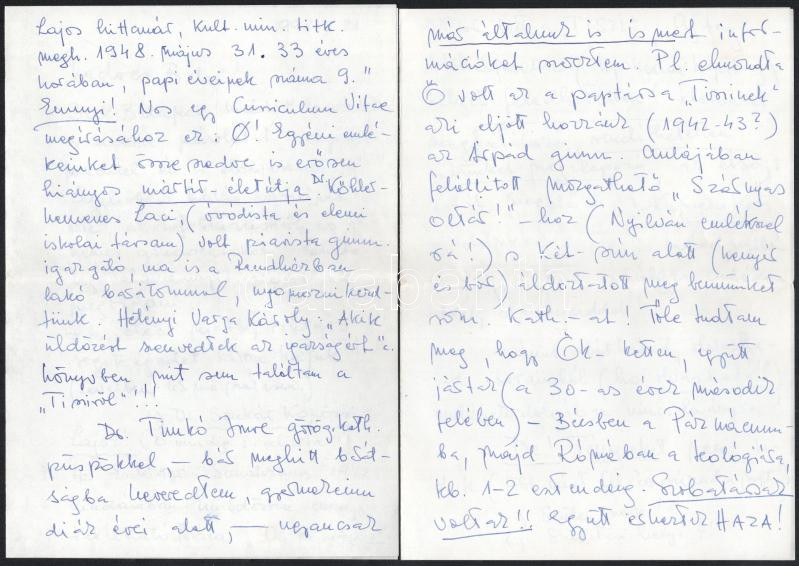 Lajos hittanár, kult. min. titk.
megh. 1948. május 31. 33 éves
korában, papi éveinek száma 9."
Ennyi! Nos egy Curriculum Vitae
megírásához ez: Ø! Egyéni emlé-
keinket összeszedve is erősen
hiányos mártír-életútja. Dr. Köhler-
nemeves Laci, (óvódista és elemi
iskolai társam) volt piarista gimn.
igazgató, ma is a Rendházban
lakó barátommal, nyomozni kezd-
tünk. Hetényi Varga Károly: „Akik
üldözést szenvedtek az igazságért" c.
könyvben mit sem találtam a
„Tixiről"!!!
Dr. Timkó Imre görögkath.
püspökkel, – bár meghitt barát-
ságba keveredtem, gyermekeim
diák évei alatt, – ugyancsak
már általunk is ismert infor-
mációkat szereztem. Pl. elmondta
Ő volt az a paptársa „Tixinek"
aki eljött hozzánk (1942-43?)
az Árpád gimn. Aulájában
felállított mozgatható „Szárnyas
oltár!"-hoz (Nyilván emlékszel
rá!) s Két-szín alatt (kenyér
és bor) áldoztatott meg bennünket
róm. Kath.-at! Tőle tudtam
meg, hogy Ők-ketten, együtt
jártak (a 30-as évek második
felében) – Bécsben a Pázmáneum-
ba, majd Rómában a teológiára,
kb. 1-2 esztendeig. Szobatársak
voltak!! Együtt eskertek HAZA!